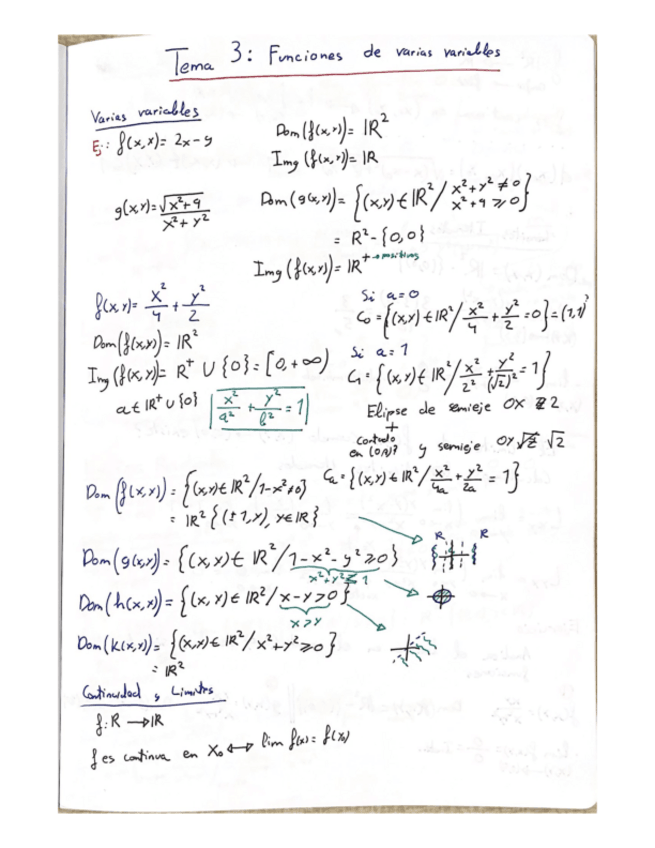 Tema 3: Funciones de varias variables
Varias variables
Ej: f(x,y)= 2x-y
Dom(f(x,y))= IR²
Img(f(x,y))= IR
g(x,y)= √(x²+9) / (x²+y²)
Dom(g(x,y))= {(x,y) ∈ IR² / x²+y² ≠ 0
x²+9 ≥ 0}
= R²-{0,0}
Img(f(x,y))= IR⁺ → positivos
f(x,y)= x²/4 + y²/2
Dom(f(x,y))= IR²
Img(f(x,y))= R⁺ ∪ {0} = [0,+∞)
a ∈ IR⁺ ∪ {0}
x²/a² + y²/b² = 1
Si a=0
C₀ = {(x,y) ∈ IR² / x²/4 + y²/2 = 0} = (1,1)?
Si a=1
C₁ = {(x,y) ∈ IR² / x²/2² + y²/(√2)² = 1}
Elipse de semieje OX 2
+
centrado
en (0,0)? y semieje OY √2
Cₐ = {(x,y) ∈ IR² / x²/4a + y²/2a = 1}
Dom(f(x,y)) = {(x,y) ∈ IR² / 1-x² ≠ 0}
= IR² {(±1,y), y ∈ IR}
Dom(g(x,y)) = {(x,y) ∈ IR² / 1-x²-y² ≥ 0}
x²+y² ≤ 1
R R
Dom(h(x,y)) = {(x,y) ∈ IR² / x-y > 0}
x > y
Dom(K(x,y)) = {(x,y) ∈ IR² / x²+y² ≥ 0}
= IR²
Continuidad y Limites
f: R → IR
f es continua en X₀ ↔ lim f(x) = f(x₀)